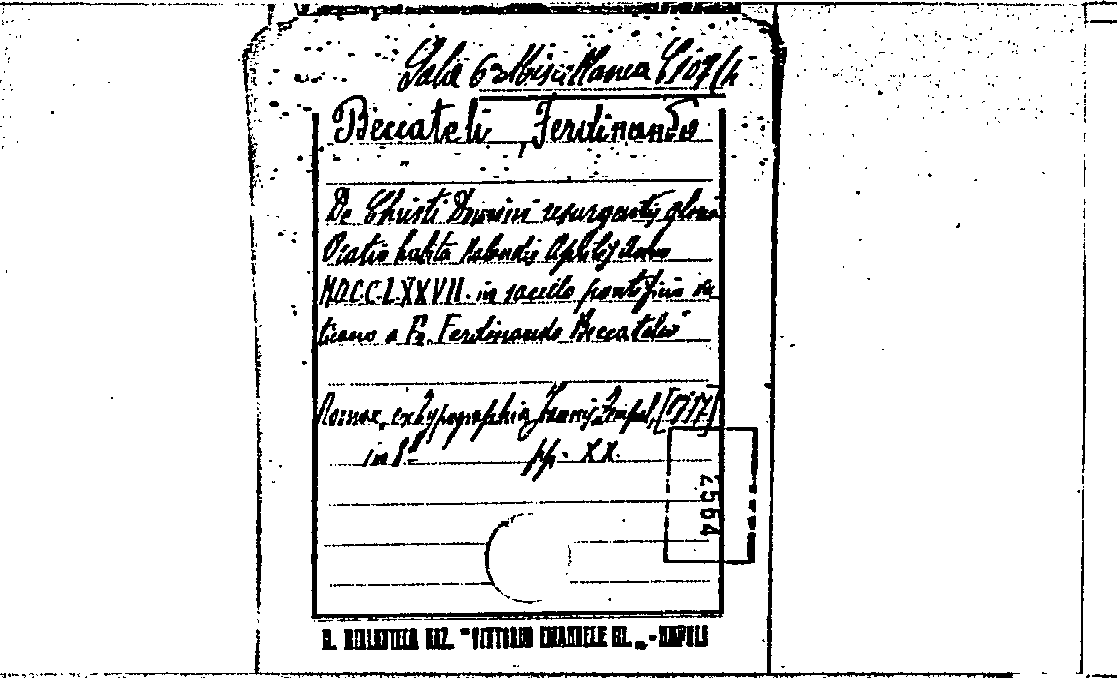 Sala 6 Miscellanea C107/4
Beccateli, Ferdinando
De Christi Domini resurgentis gloria
Oratio habita Kalendis Aprilis Anno
MDCCLXXVII. in sacello pontificio va
ticano a Fr. Ferdinando Beccatelio
Romae, ex typographia Joannis Zempel, [1777]
in 8° pp. XX.
2564
R. BIBLIOTECA NAZ. "VITTORIO EMANUELE III." - NAPOLI